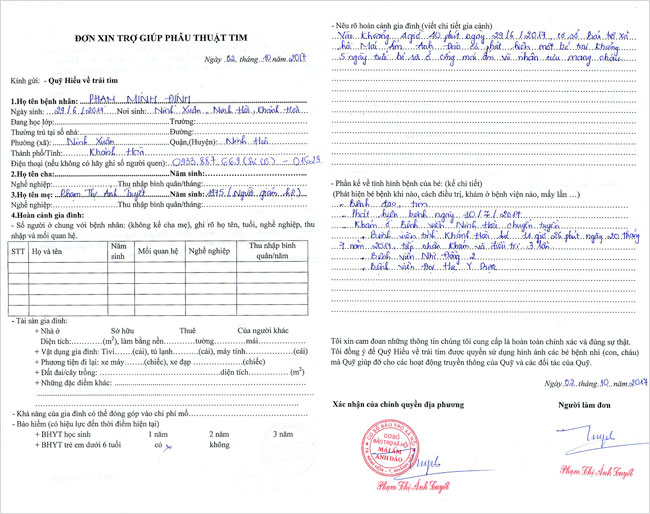 ĐƠN XIN TRỢ GIÚP PHẪU THUẬT TIM
Ngày 02 tháng 10 năm 2017
Kính gửi: - Quỹ Hiểu về trái tim
1.Họ tên bệnh nhân: PHẠM MINH ĐỊNH
Ngày sinh: 29/6/2017 Nơi sinh: Ninh Xuân, Ninh Hòa, Khánh Hòa
Đang học lớp: Trường:
Thường trú tại số nhà: Đường:
Phường (xã): Ninh Xuân Quận,(Huyện): Ninh Hòa
Thành phố/Tỉnh: Khánh Hòa
Điện thoại (nếu không có hãy ghi số người quen): 0933.887.669
2.Họ tên cha: Năm sinh:
Nghề nghiệp: Thu nhập bình quân/tháng:
3.Họ tên mẹ: Phạm Thị Ánh Tuyết Năm sinh: 1975 (Người giám hộ)
Nghề nghiệp: Thu nhập bình quân/tháng:
4.Hoàn cảnh gia đình:
- Số người ở chung với bệnh nhân: (không kể cha mẹ), ghi rõ họ tên, tuổi, nghề nghiệp, thu
nhập và mối quan hệ.
STT Họ và tên Năm sinh Mối quan hệ Nghề nghiệp Thu nhập bình quân/năm
- Tài sản gia đình:
+ Nhà ở Sở hữu Thuê Của người khác
Diện tích: (m²), làm bằng nền tường mái
+ Vật dụng gia đình: Tivi (cái), tủ lạnh (cái), máy tính (cái)
+ Phương tiện đi lại: xe máy (chiếc), xe đạp (chiếc)
+ Đất đai/cây trồng: diện tích (m²)
+ Những đặc điểm khác:
- Khả năng của gia đình có thể đóng góp vào chi phí mổ
- Bảo hiểm (có hiệu lực đến thời điểm hiện tại)
+ BHYT học sinh 1 năm 2 năm 3 năm
+ BHYT trẻ em dưới 6 tuổi có không
- Nêu rõ hoàn cảnh gia đình (viết chi tiết gia cảnh)
Vào khoảng 4 giờ 10 phút ngày 29/6/2017, cơ sở Bảo trợ xã
hội Mái Ấm Anh Đào có phát hiện một bé trai khoảng
5 ngày tuổi bị bỏ ở cổng mái ấm và nhân cứu mang cháu
- Phần kể về tình hình bệnh của bé: (kể chi tiết)
(Phát hiện bé bệnh khi nào, cách điều trị, khám ở bệnh viện nào, mấy lần ...)
- Bệnh tim
- Phát hiện bệnh ngày 10/7/2017
- Khám ở Bệnh viện Ninh Hòa chuyển tuyến
- Bệnh viện tỉnh Khánh Hòa lúc 14 giờ 26 phút ngày 20 tháng
7 năm 2017 tiếp nhận khám và điều trị 3 lần
- Bệnh viện Nhi Đồng 2
- Bệnh viện Đại Học Y Dược
Tôi xin cam đoan những thông tin chúng tôi cung cấp là hoàn toàn chính xác và đúng sự thật.
Tôi đồng ý để Quỹ Hiểu về trái tim được quyền sử dụng hình ảnh các bé bệnh nhi (con, cháu)
mà Quỹ giúp đỡ cho các hoạt động truyền thông của Quỹ và các đối tác của Quỹ.
Ngày 02 tháng 10 năm 2017
Xác nhận của chính quyền địa phương Người làm đơn
CƠ SỞ
BẢO TRỢ XÃ HỘI
MÁI ẤM
ANH ĐÀO
Phạm Thị Ánh Tuyết Phạm Thị Ánh Tuyết